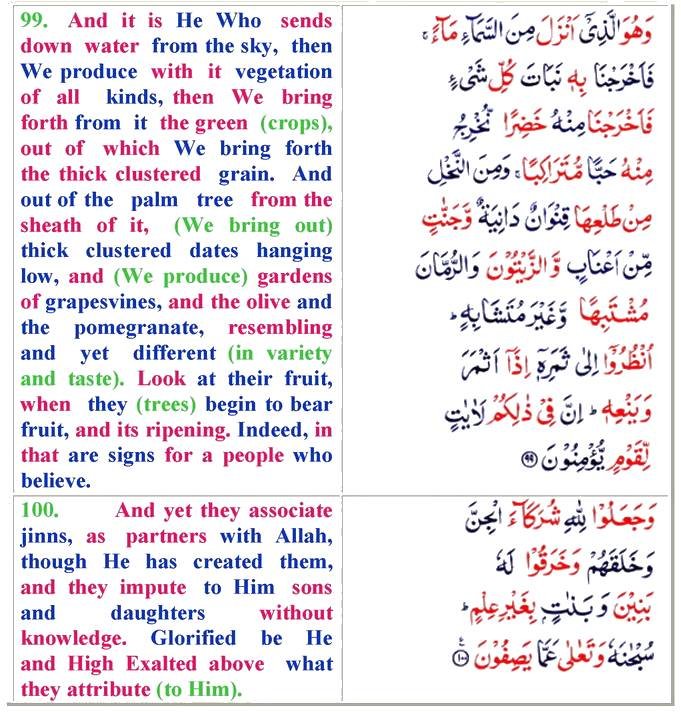 99. And it is He Who sends
down water from the sky, then
We produce with it vegetation
of all kinds, then We bring
forth from it the green (crops),
out of which We bring forth
the thick clustered grain. And
out of the palm tree from the
sheath of it, (We bring out)
thick clustered dates hanging
low, and (We produce) gardens
of grapesvines, and the olive and
the pomegranate, resembling
and yet different (in variety
and taste). Look at their fruit,
when they (trees) begin to bear
fruit, and its ripening. Indeed, in
that are signs for a people who
believe.
وَهُوَ الَّذِىْۤ اَنْزَلَ مِنَ السَّمَآءِ مَآءً ۚ
فَاَخْرَجْنَا بِهٖ نَبَاتَ كُلِّ شَىْءٍ
فَاَخْرَجْنَا مِنْهُ خَضِرًا نُّخْرِجُ
مِنْهُ حَبًّا مُّتَرَاكِبًا ۚ وَمِنَ النَّخْلِ
مِنْ طَلْعِهَا قِنْوَانٌ دَانِيَةٌ وَّجَنّٰتٍ
مِّنْ اَعْنَابٍ وَّالزَّيْتُوْنَ وَالرُّمَّانَ
مُشْتَبِهًا وَّغَيْرَ مُتَشَابِهٍ ؕ
اُنْظُرُوْۤا اِلٰى ثَمَرِهٖۤ اِذَاۤ اَثْمَرَ
وَيَنْعِهٖ ؕ اِنَّ فِىْ ذٰلِكُمْ لَاٰيٰتٍ
لِّقَوْمٍ يُّؤْمِنُوْنَ ۹۹
100. And yet they associate
jinns, as partners with Allah,
though He has created them,
and they impute to Him sons
and daughters without
knowledge. Glorified be He
and High Exalted above what
they attribute (to Him).
وَجَعَلُوْا لِلّٰهِ شُرَكَآءَ الْجِنَّ
وَخَلَقَهُمْ وَخَرَقُوْا لَهٗ
بَنِيْنَ وَبَنٰتٍۢ بِغَيْرِ عِلْمٍ ؕ
سُبْحٰنَهٗ وَتَعٰلٰى عَمَّا يَصِفُوْنَ ۱۰۰